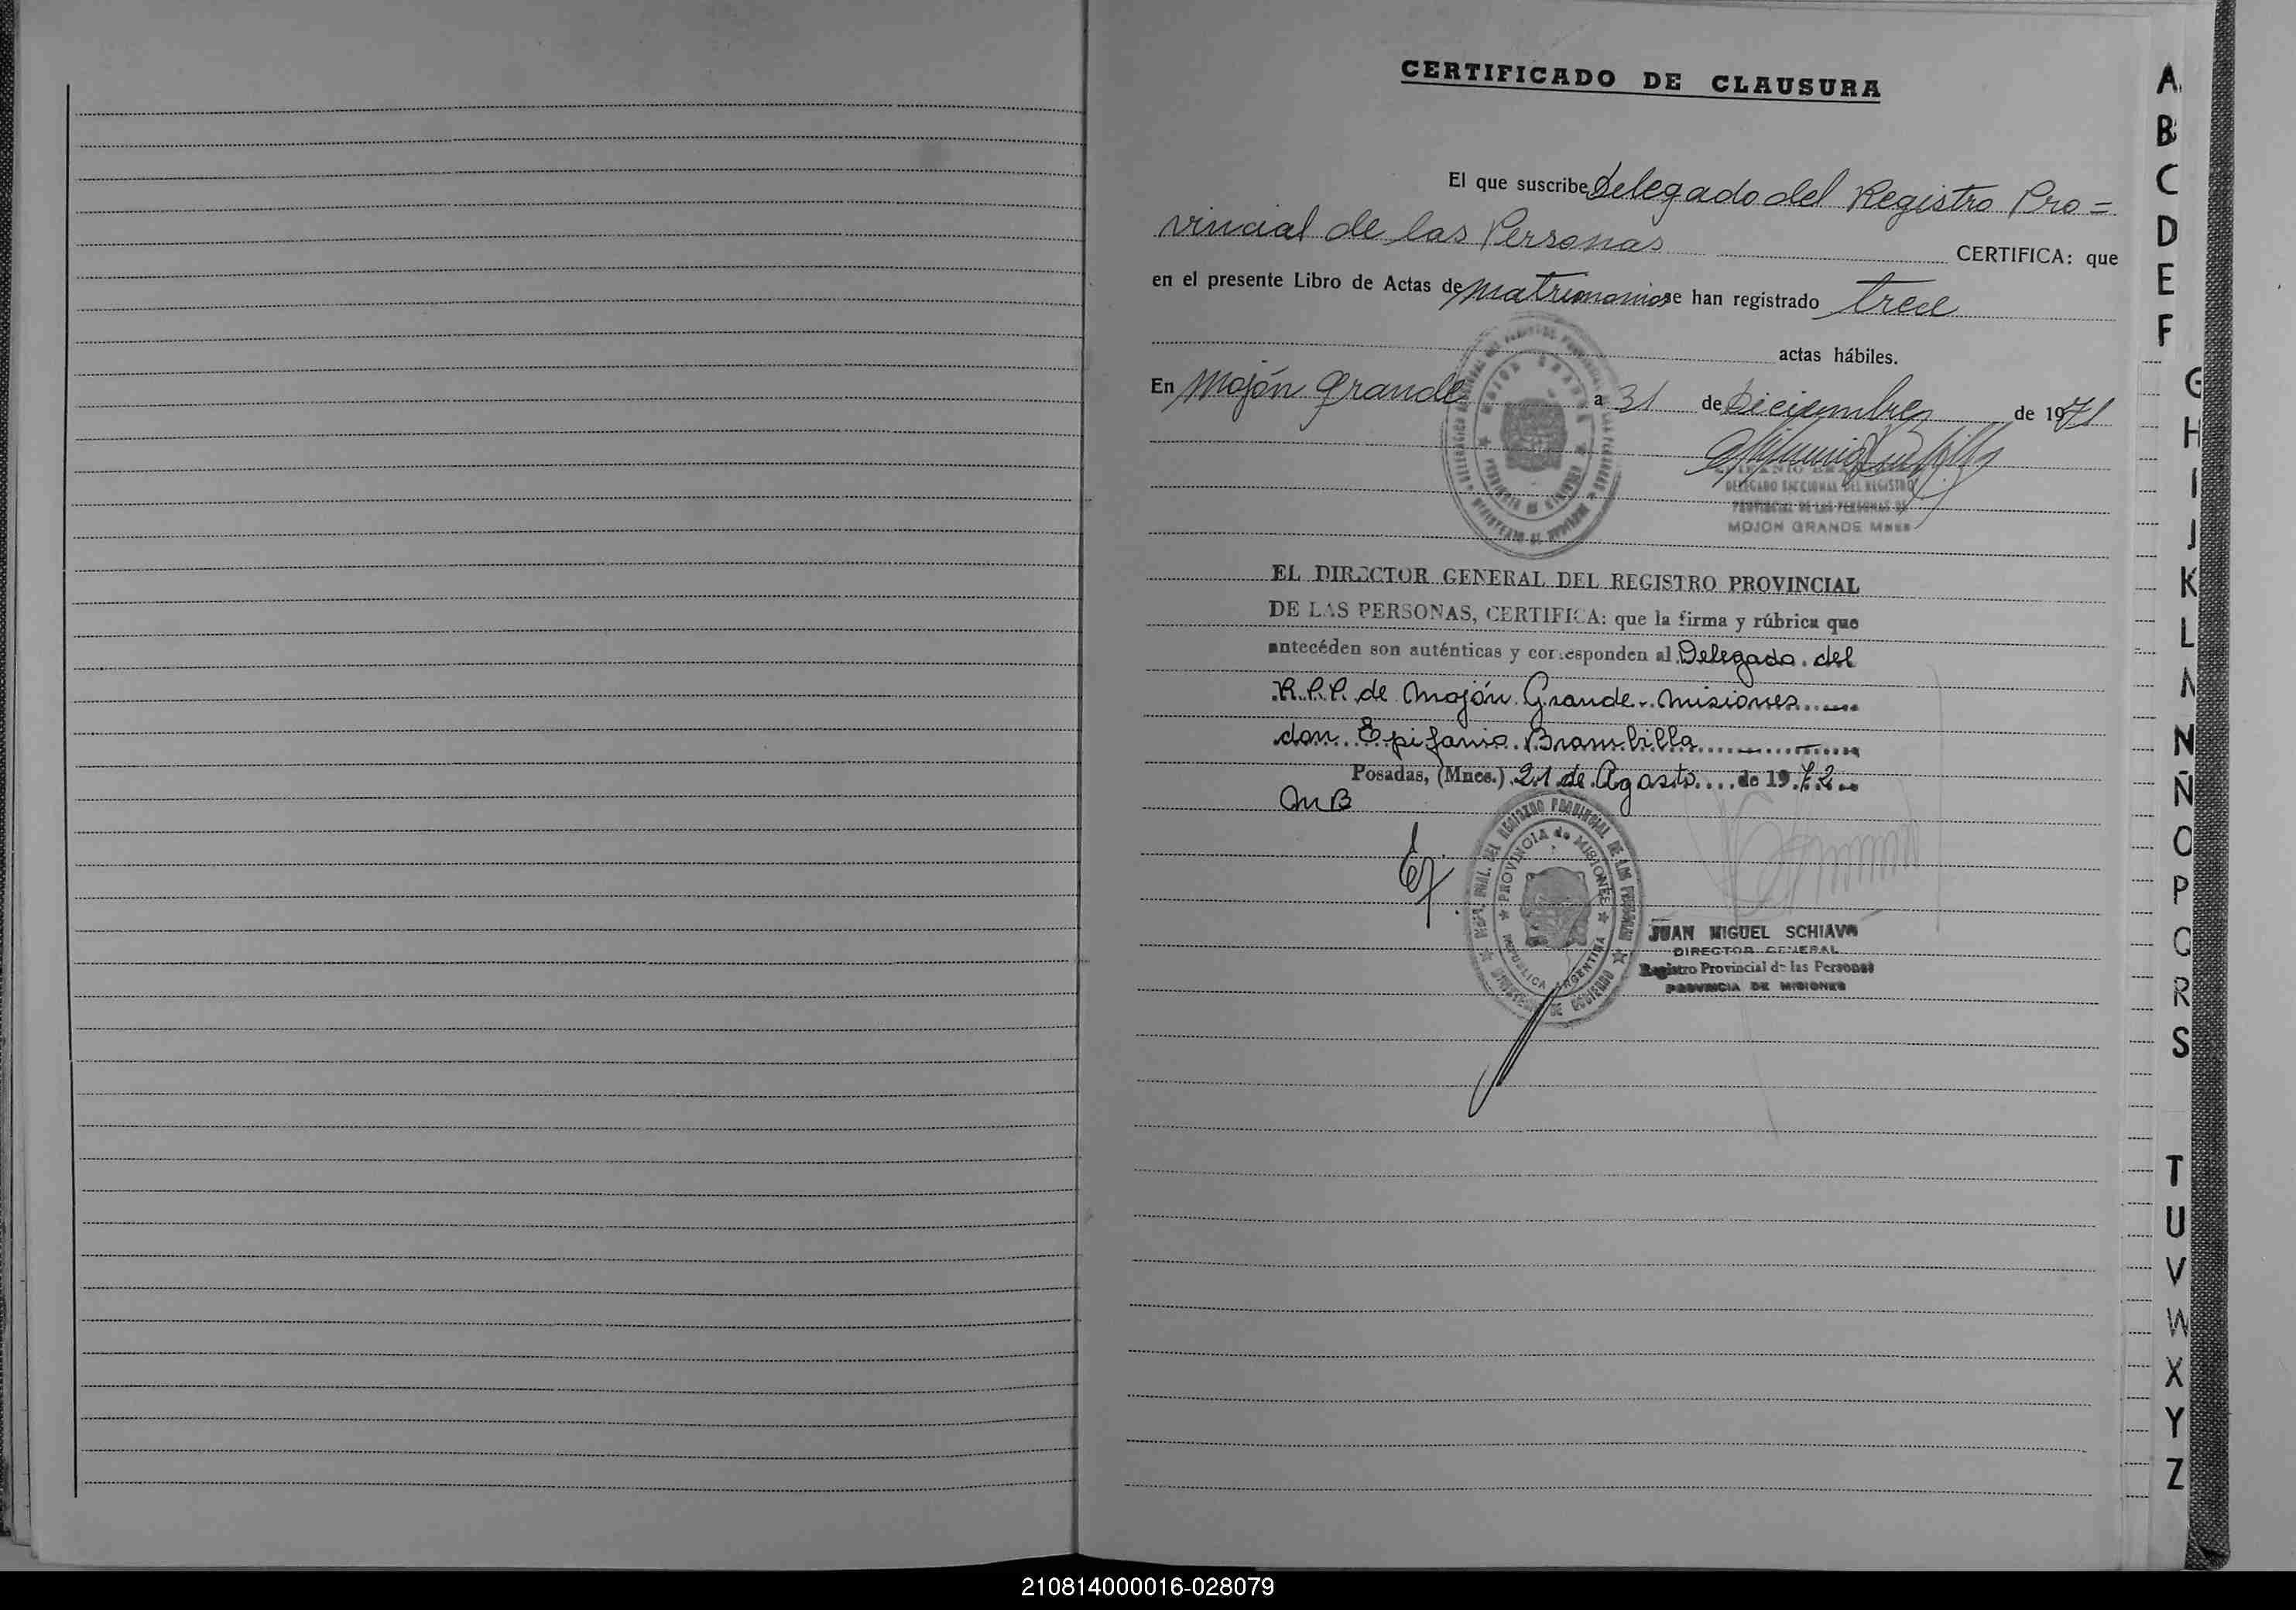 CERTIFICADO DE CLAUSURA
El que suscribe Delegado del Registro Pro=
vincial de las Personas CERTIFICA: que
en el presente Libro de Actas de Matrimonios se han registrado trece
actas hábiles.
En Mojón Grande a 31 de Diciembre de 1971
DELEGADO SECCIONAL DEL REGISTRO
PROVINCIAL DE LAS PERSONAS DE
MOJON GRANDE Mnes
EL DIRECTOR GENERAL DEL REGISTRO PROVINCIAL
DE LAS PERSONAS, CERTIFICA: que la firma y rúbrica que
antecéden son auténticas y corresponden al Delegado del
R.P.P. de Mojón Grande - Misiones
don Epifanio Brambilla
Posadas, (Mnes.) 21 de Agosto de 1972
MB
PROVINCIA de MISIONES
REPUBLICA ARGENTINA
JUAN MIGUEL SCHIAVO
DIRECTOR GENERAL
Registro Provincial de las Personas
PROVINCIA DE MISIONES
A
B
C
D
E
F
G
H
I
J
K
L
N
Ñ
O
P
R
S
T
U
V
W
X
Y
Z
210814000016-028079